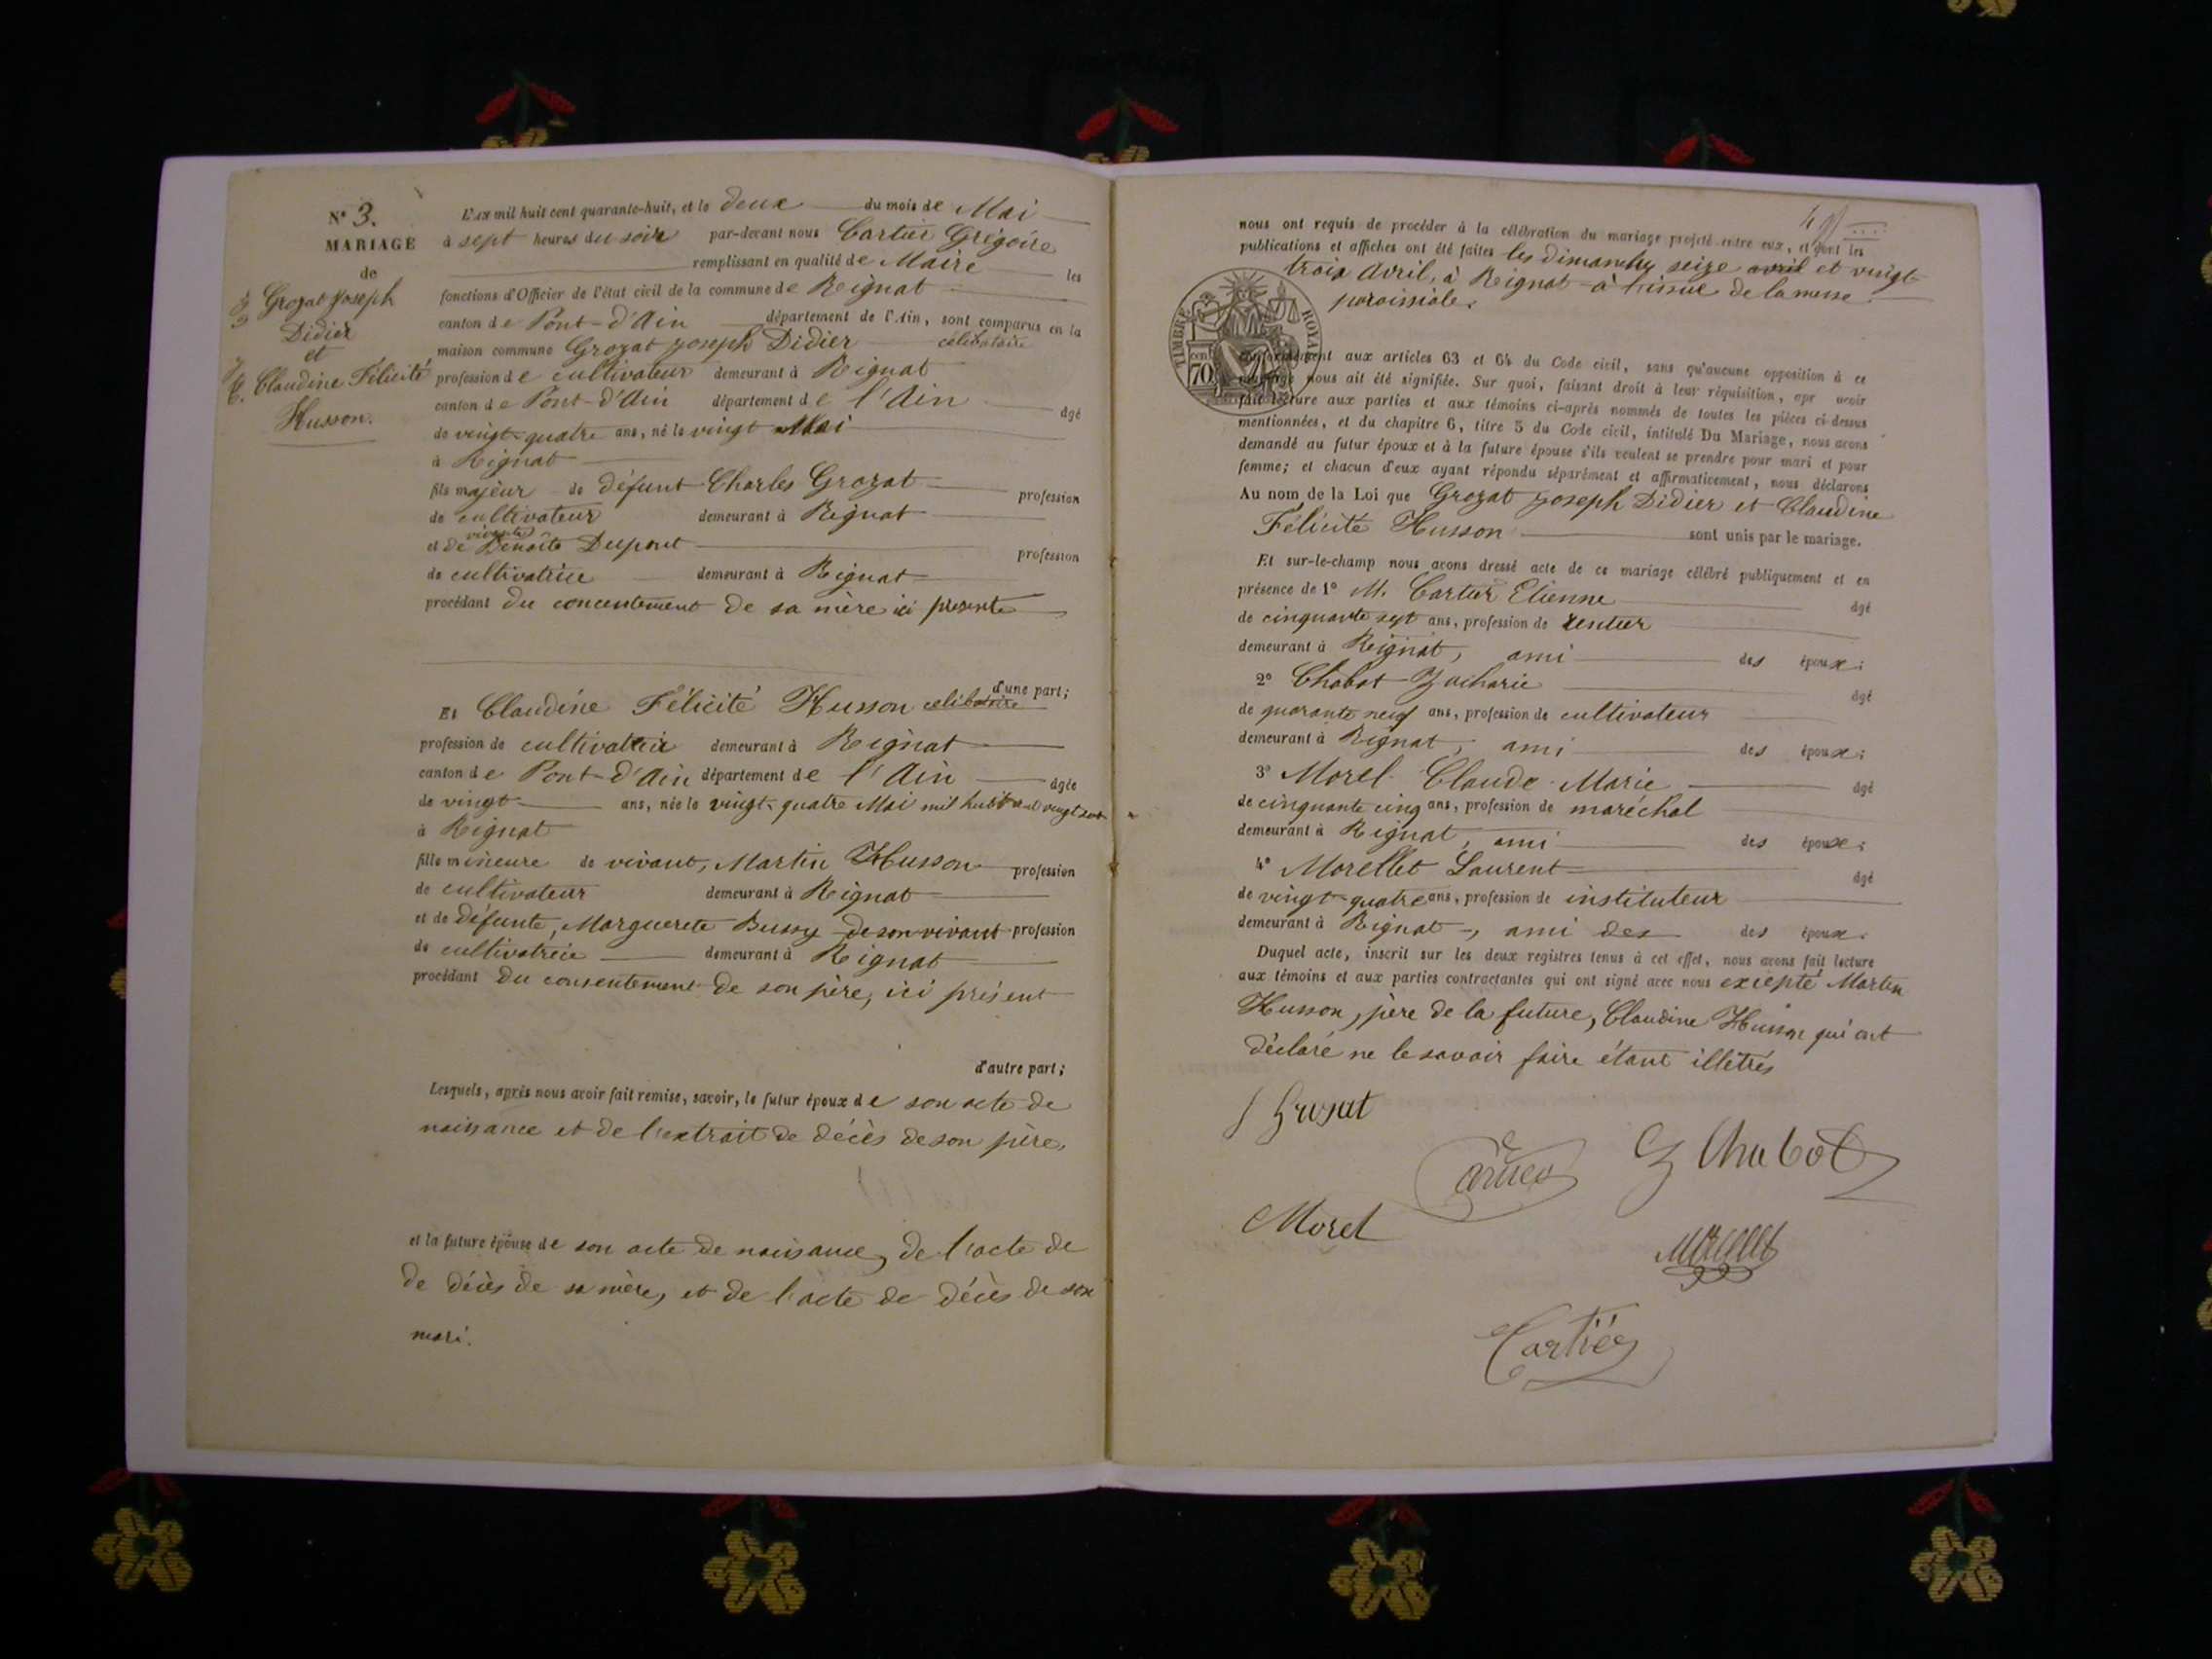 N° 3.
MARIAGE
de
Grozat Joseph
Didier
et
Claudine Félicité
Husson.
L'an mil huit cent quarante-huit, et le deux du mois de Mai
à sept heures du soir par-devant nous Cartier Grégoire
remplissant en qualité de Maire les
fonctions d'Officier de l'état civil de la commune de Rignat
canton de Pont-d'Ain département de l'Ain, sont comparus en la
maison commune Grozat Joseph Didier célibataire
profession de cultivateur demeurant à Rignat
canton de Pont-d'Ain département de l'Ain âgé
de vingt-quatre ans, né le vingt Mai
à Rignat
fils majeur de défunt Charles Grozat profession
de cultivateur demeurant à Rignat
et de vivante Benoîte Dupont profession
de cultivatrice demeurant à Rignat
procédant du concentement de sa mère ici présente
d'une part;
Et Claudine Félicité Husson célibataire
profession de cultivatrice demeurant à Rignat
canton de Pont-d'Ain département de l'Ain âgée
de vingt ans, née le vingt-quatre Mai mil huit cent vingt sept
à Rignat
fille mineure de vivant, Martin Husson profession
de cultivateur demeurant à Rignat
et de défunte, Marguerete Bussy de son vivant profession
de cultivatrice demeurant à Rignat
procédant du consentement de son père, ici présent
d'autre part;
Lesquels, après nous avoir fait remise, savoir, le futur époux de son acte de
naissance et de l'extrait de décès de son père,
et la future épouse de son acte de naissance, de l'acte de
de décès de sa mère, et de l'acte de décès de son
mari.
nous ont requis de procéder à la célébration du mariage projeté entre eux, et dont les
publications et affiches ont été faites les dimanches seize avril et vingt
trois avril, à Rignat à l'issue de la messe
paroissiale.
TIMBRE ROYAL
70
conformément aux articles 63 et 64 du Code civil, sans qu'aucune opposition à ce
mariage nous ait été signifiée. Sur quoi, faisant droit à leur réquisition, apr avoir
fait lecture aux parties et aux témoins ci-après nommés de toutes les pièces ci-dessus
mentionnées, et du chapitre 6, titre 5 du Code civil, intitulé Du Mariage, nous avons
demandé au futur époux et à la future épouse s'ils veulent se prendre pour mari et pour
femme; et chacun d'eux ayant répondu séparément et affirmativement, nous déclarons
Au nom de la Loi que Grozat Joseph Didier et Claudine
Félicité Husson sont unis par le mariage.
Et sur-le-champ nous avons dressé acte de ce mariage célébré publiquement et en
présence de 1° M. Cartier Etienne âgé
de cinquante sept ans, profession de rentier
demeurant à Rignat, ami des époux;
2° Chabot Zacharie âgé
de quarante neuf ans, profession de cultivateur
demeurant à Rignat, ami des époux;
3° Morel Claude Marie âgé
de cinquante cinq ans, profession de maréchal
demeurant à Rignat, ami des époux;
4° Morellet Laurent âgé
de vingt-quatre ans, profession de instituteur
demeurant à Rignat, ami des des époux.
Duquel acte, inscrit sur les deux registres tenus à cet effet, nous avons fait lecture
aux témoins et aux parties contractantes qui ont signé avec nous excepté Martin
Husson, père de la future, Claudine Husson qui ont
déclaré ne le savoir faire étant illétrés
J Grozat
Z Chabot
Morel
Morellet
Cartier